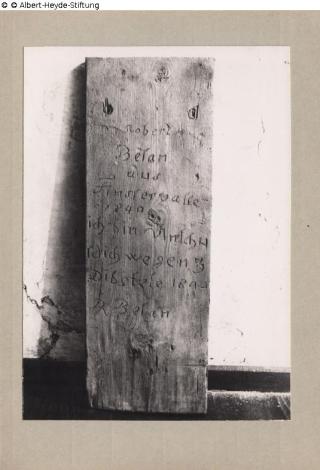 © © Albert-Heyde-Stiftung
Robert
Belan
aus
Finsterwalde
1840
ich bin Unschu
ldich wegen 3
Dibstele
R Belan